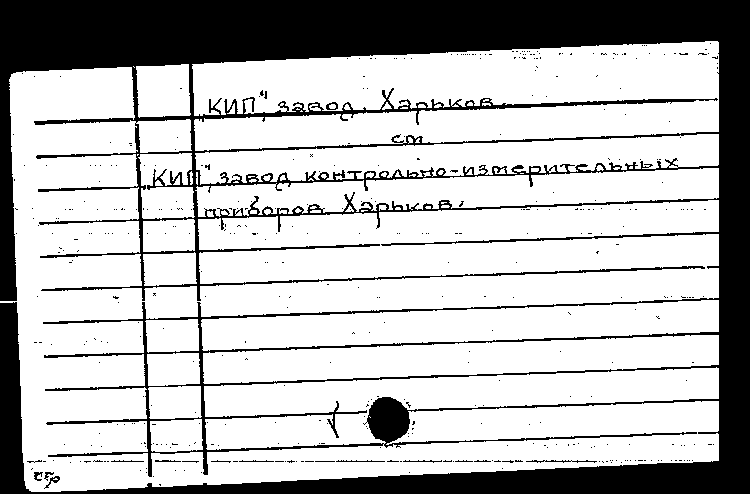 „КИП", завод. Харьков.
см.
„КИП", завод контрольно-измерительных
приборов. Харьков.